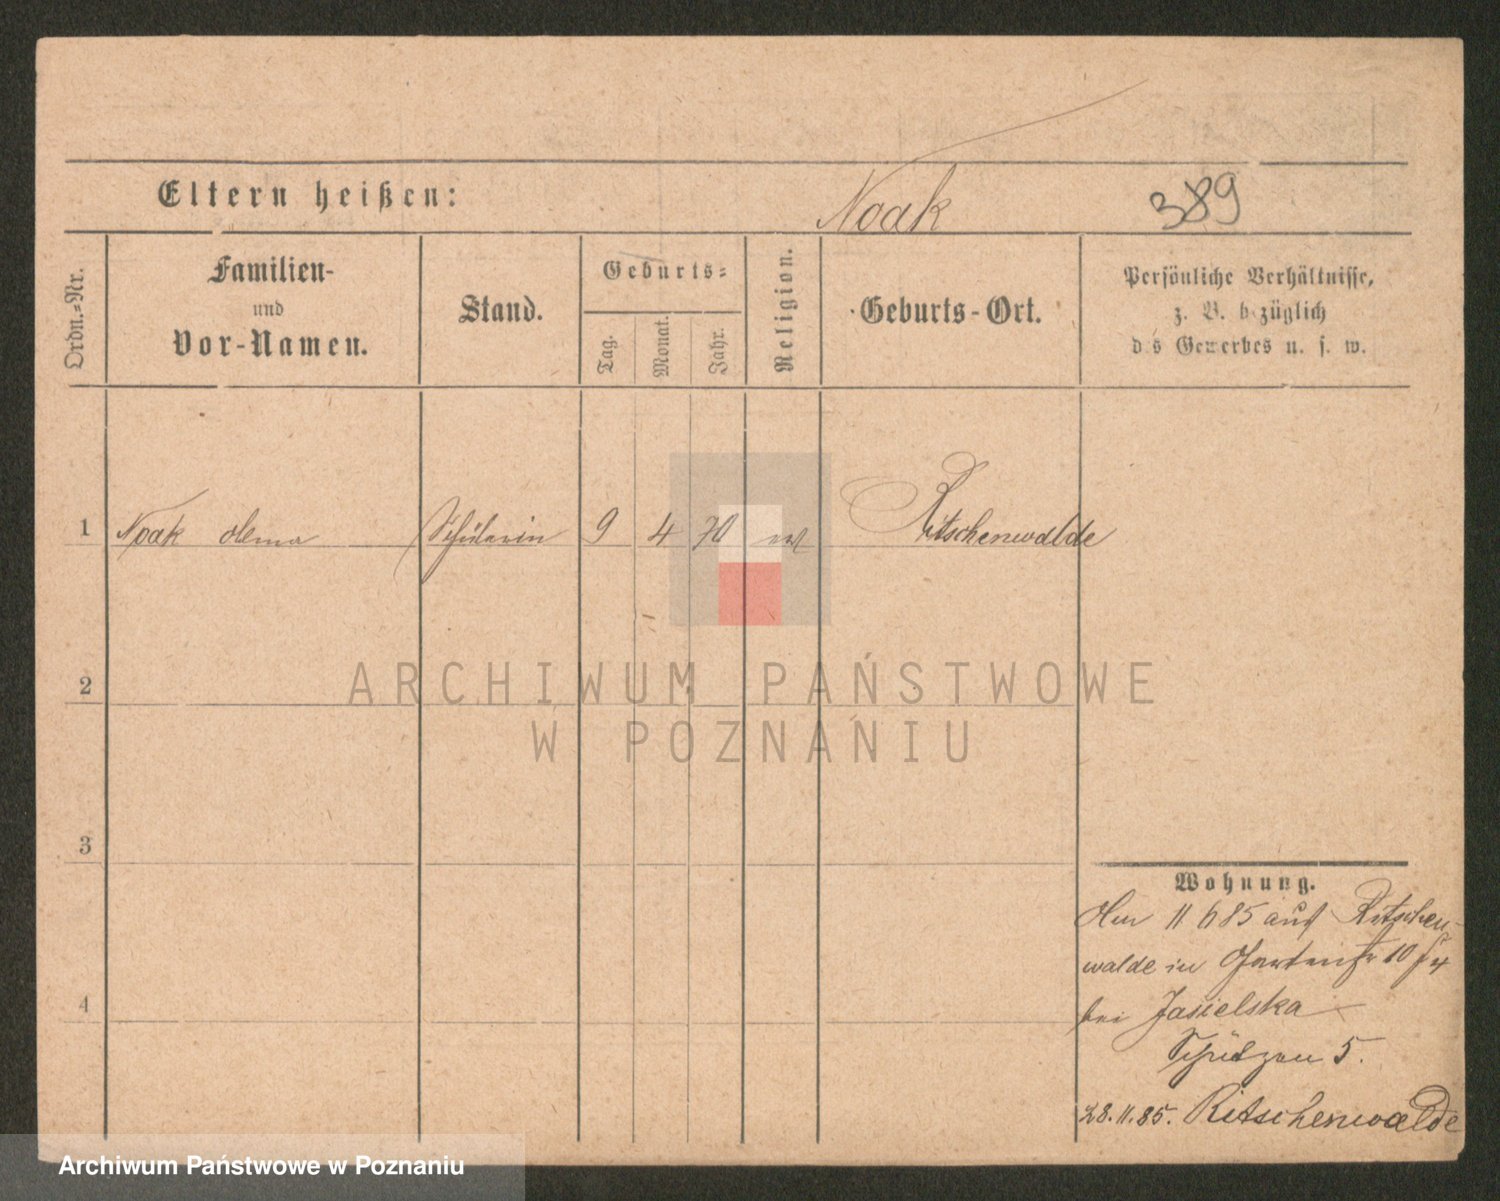 Eltern heißen:
Noak 389
Ordn.-Nr.
Familien-
und
Vor-Namen.
Stand.
Geburts-
Tag.
Monat.
Jahr.
Religion.
Geburts-Ort.
Persönliche Verhältnisse,
z. B. bezüglich
des Gewerbes u. s. w.
1 Noak Schülerin 9 4 70 ev Ritschenwalde
2
3
4
Wohnung.
11 6 85 auf Ritschen-
walde in Gartenstr 10
bei Jasielska
Schützen 5.
28.11.85. Ritschenwalde
ARCHIWUM PAŃSTWOWE
W POZNANIU
Archiwum Państwowe w Poznaniu